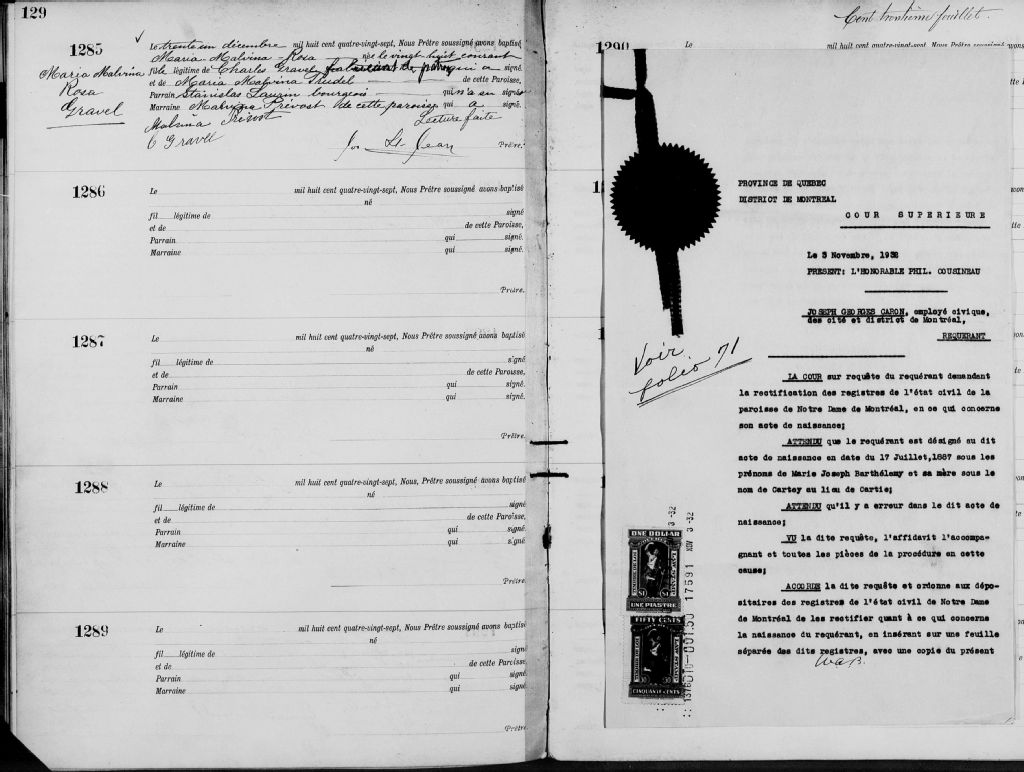 129
1285
Maria Malvina
Rosa
Gravel
Le trente un décembre mil huit cent quatre-vingt-sept, Nous Prêtre soussigné avons baptisé
Maria Malvina Rosa née le vingt huit courant
fille légitime de Charles Gravel qui a signé
et de Maria Malvina Trudel de cette Paroisse,
Parrain Stanislas bourgeois qui n'a su signer
Marraine Malvina Prévost de cette paroisse qui a signé.
Malvina Prévost Lecture faite
C Gravel
Jos St Jean Prêtre.
1286
Le mil huit cent quatre-vingt-sept, Nous Prêtre soussigné avons baptisé
né
fil légitime de signé
et de de cette Paroisse,
Parrain qui signé.
Marraine qui signé.
Prêtre.
1287
Le mil huit cent quatre-vingt-sept, Nous Prêtre soussigné avons baptisé
né
fil légitime de signé
et de de cette Paroisse,
Parrain qui signé.
Marraine qui signé.
Prêtre.
1288
Le mil huit cent quatre-vingt-sept, Nous, Prêtre soussigné avons baptisé
né
fil légitime de signé
et de de cette Paroisse,
Parrain qui signé.
Marraine qui signé.
Prêtre.
1289
Le mil huit cent quatre-vingt-sept, Nous Prêtre soussigné avons baptisé
né
fil légitime de signé
et de de cette Paroisse
Parrain qui signé.
Marraine qui signé.
Prêtre
Cent trentième feuillet.
1290
Le mil huit cent quatre-vingt-sept, Nous Prêtre soussigné avons
PROVINCE DE QUEBEC
DISTRICT DE MONTREAL
COUR SUPERIEURE
Le 3 Novembre, 1932
PRESENT: L'HONORABLE PHIL. COUSINEAU
JOSEPH GEORGES CARON, employé civique,
des cité et district de Montréal,
REQUERANT
Voir
folio 71
LA COUR sur requête du requérant demandant
la rectification des registres de l'état civil de la
paroisse de Notre Dame de Montréal, en ce qui concerne
son acte de naissance;
ATTENDU que le requérant est désigné au dit
acte de naissance en date du 17 Juillet,1887 sous les
prénoms de Marie Joseph Barthélemy et sa mère sous le
nom de Cartey au lieu de Cartie;
ATTENDU qu'il y a erreur dans le dit acte de
naissance;
VU la dite requête, l'affidavit l'accompa-
gnant et toutes les pièces de la procédure en cette
cause;
ACCORDE la dite requête et ordonne aux dépo-
sitaires des registres de l'état civil de Notre Dame
de Montréal de les rectifier quant à ce qui concerne
la naissance du requérant, en insérant sur une feuille
séparée des dits registres, avec une copie du présent
ONE DOLLAR
$1 $1
UNE PIASTRE
FIFTY CENTS
50 50
CINQUANTE CENTS
17591 NOV 3-32
3-32